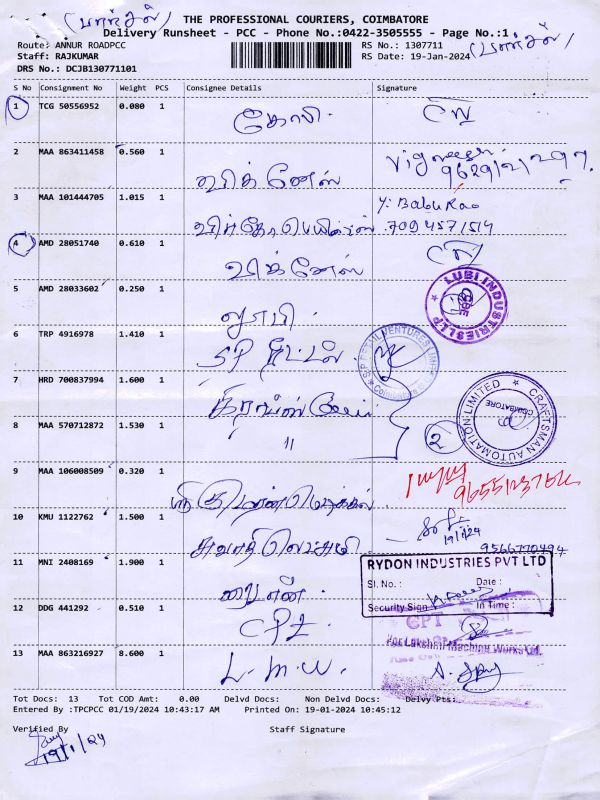 (பார்சல்)
THE PROFESSIONAL COURIERS, COIMBATORE
Delivery Runsheet - PCC - Phone No.:0422-3505555 - Page No.:1
(பார்சல்)
Route: ANNUR ROADPCC
RS No.: 1307711
Staff: RAJKUMAR
RS Date: 19-Jan-2024
DRS No.: DCJB130771101
S No Consignment No Weight PCS Consignee Details Signature
1 TCG 50556952 0.080 1
கோபி
2 MAA 863411458 0.560 1 Vignesh
விக்னேஸ்
3 MAA 101444705 1.015 1 Y. BabuRao
7094571514
4 AMD 28051740 0.610 1
விக்னேஸ்
5 AMD 28033602 0.250 1
லூபி
LUBI INDUSTRIES LLP
6 TRP 4916978 1.410 1
SP
7 HRD 700837994 1.600 1
CRAFTSMAN AUTOMATION LIMITED
COIMBATORE
8 MAA 570712872 1.530 1
"
2
9 MAA 106008509 0.320 1
10 KMU 1122762 1.500 1
19/1/24
9566770494
11 MNI 2408169 1.900 1
RYDON INDUSTRIES PVT LTD
Sl. No.: Date:
Security Sign In Time:
12 DDG 441292 0.510 1
CPT
CPT
For Lakshmi Machine Works Ltd.
13 MAA 863216927 8.600 1
L.M.W.
Tot Docs: 13 Tot COD Amt: 0.00 Delvd Docs: Non Delvd Docs: Delvy Pts:
Entered By :TPCPCC 01/19/2024 10:43:17 AM Printed On: 19-01-2024 10:45:12
Verified By Staff Signature
19/1/24